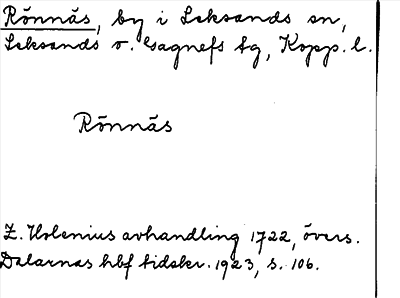 Rönnäs, by i Leksands sn,
Leksands o. Gagnefs tg, Kopp. l.
Rönnäs
Z. Holenius avhandling 1722, övers.
Dalarnas hbf tidskr. 1923, s. 106.